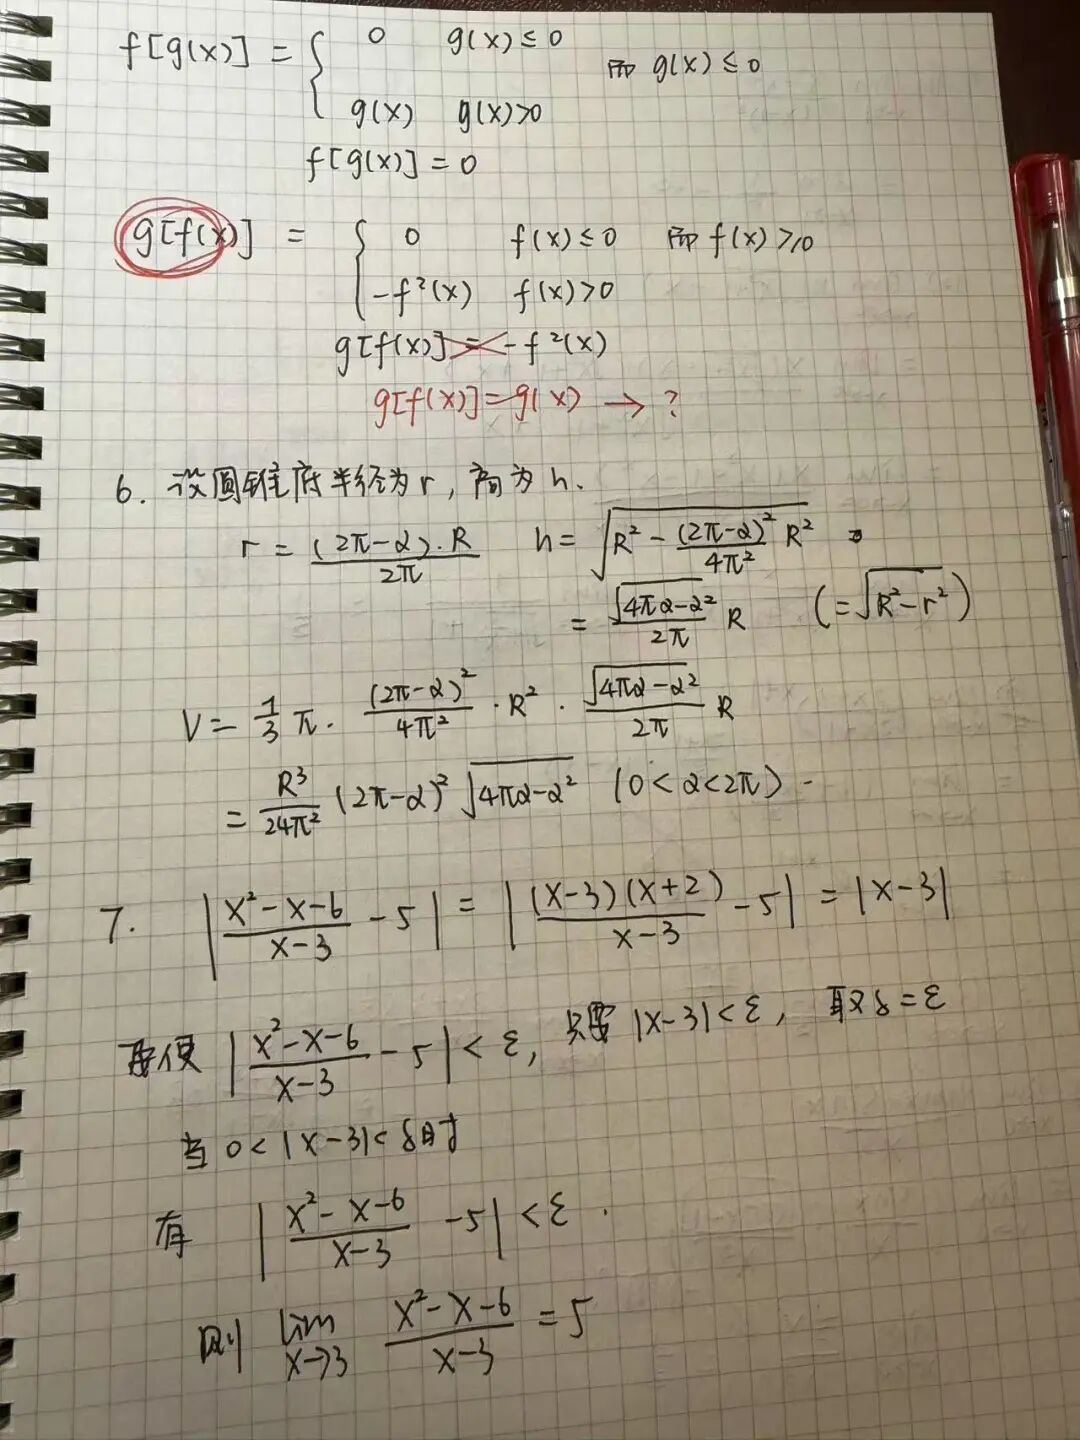 f[g(x)] = { 0 g(x) ≤ 0 而 g(x) ≤ 0
g(x) g(x)>0
f[g(x)] = 0
g[f(x)] = { 0 f(x) ≤ 0 而 f(x) ≥ 0
-f²(x) f(x)>0
g[f(x)] = -f²(x)
g[f(x)] = g(x) → ?
6. 设圆锥底半径为 r, 高为 h.
r = (2π-α)·R / 2π h = √(R² - (2π-α)²/4π² R²)
= √(4πα-α²) / 2π R (= √(R²-r²))
V = 1/3 π · (2π-α)²/4π² · R² · √(4πα-α²)/2π R
= R³/24π² (2π-α)² √(4πα-α²) (0<α<2π)
7. | (x²-x-6)/(x-3) - 5 | = | (x-3)(x+2)/(x-3) - 5 | = |x-3|
要使 | (x²-x-6)/(x-3) - 5 | < ε, 只要 |x-3| < ε, 取δ=ε
当 0<|x-3|<δ时
有 | (x²-x-6)/(x-3) - 5 | < ε.
则 lim x→3 (x²-x-6)/(x-3) = 5